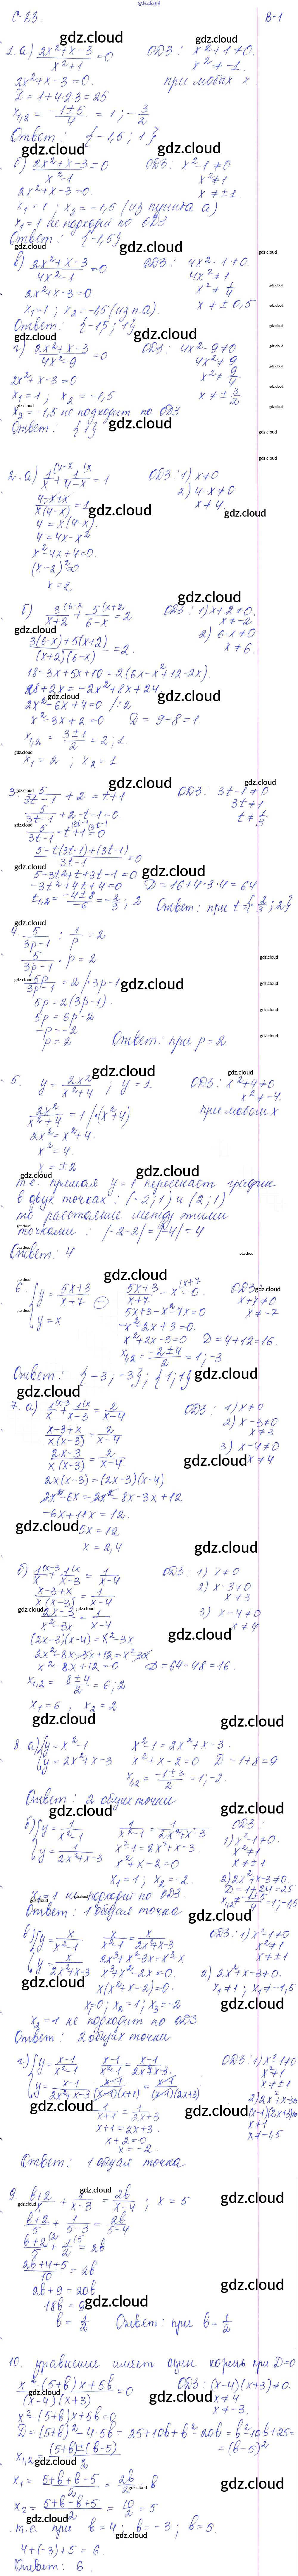 gdz.cloud
С-23. В-1
1. а) (2x²+x-3)/(x²+1) = 0 ОДЗ: x²+1≠0.
2x²+x-3=0. x²≠-1.
D = 1+4·2·3 = 25 при любых x.
x₁,₂ = (-1±5)/4 = 1; -3/2
Ответ: {-1,5; 1}
б) (2x²+x-3)/(x²-1) = 0 ОДЗ: x²-1≠0
2x²+x-3=0. x²≠1
x₁=1; x₂=-1,5 (из пункта а) x≠±1
x₁=1 не подходит по ОДЗ
Ответ: {-1,5}
в) (2x²+x-3)/(4x²-1) = 0 ОДЗ: 4x²-1≠0.
4x²≠1
2x²+x-3=0. x²≠1/4
x₁=1; x₂=-1,5 (из п.а). x≠±0,5
Ответ: {-1,5; 1}
г) (2x²+x-3)/(4x²-9) = 0 ОДЗ: 4x²-9≠0
4x²≠9
2x²+x-3=0 x²≠9/4
x₁=1; x₂=-1,5 x≠±3/2
x₂=-1,5 не подходит по ОДЗ
Ответ: {1}
2. а) 1/x + 1/(4-x) = 1 ОДЗ: 1) x≠0
(4-x+x)/(x(4-x)) = 1 2) 4-x≠0
4 = x(4-x) x≠4
4 = 4x-x²
x²-4x+4=0.
(x-2)²=0
x=2
б) 3/(x+2) + 5/(6-x) = 2 ОДЗ: 1) x+2≠0.
x≠-2
(3(6-x)+5(x+2))/((x+2)(6-x)) = 2. 2) 6-x≠0
x≠6.
18-3x+5x+10=2(6x-x²+12-2x).
28+2x=-2x²+8x+24
2x²-6x+4=0 /:2
x²-3x+2=0 D=9-8=1.
x₁,₂ = (3±1)/2 = 2; 1
x₁=2; x₂=1
3. 5/(3t-1) + 2 = t+1 ОДЗ: 3t-1≠0
3t≠1
5/(3t-1) + 2-t-1=0. t≠1/3
5/(3t-1) - t+1=0
(5-t(3t-1)+(3t-1))/(3t-1) = 0
5-3t²+t+3t-1=0
-3t²+4t+4=0 D=16+4·3·4=64
t₁,₂ = (-4±8)/-6 = -2/3; 2 Ответ: при t={-2/3; 2}
4. 5/(3p-1) : 1/p = 2
5/(3p-1) · p = 2
5p/(3p-1) = 2 /·3p-1
5p=2(3p-1).
5p=6p-2
-p=-2
p=2 Ответ: при p=2
5. y = 2x²/(x²+4); y=1 ОДЗ: x²+4≠0
x²≠-4.
2x²/(x²+4) = 1 /·(x²+4) при любом x
2x²=x²+4.
x²=4.
x=±2
т.е. прямая y=1 пересекает график
в двух точках: (-2; 1) и (2; 1)
то расстояние между этими
точками: |-2-2|=|-4|=4
Ответ: 4
6. {y=(5x+3)/(x+7) ⊖ (5x+3)/(x+7) - x=0. ОДЗ:
y=x x+7≠0
5x+3-x²-7x=0 x≠-7
-x²-2x+3=0.
x²+2x-3=0 D=4+12=16.
x₁,₂ = (-2±4)/2 = 1; -3
Ответ: {-3; -3}; {1; 1}
7. а) 1/x + 1/(x-3) = 2/(x-4) ОДЗ: 1) x≠0
2) x-3≠0
(x-3+x)/(x(x-3)) = 2/(x-4) x≠3
3) x-4≠0
(2x-3)/(x(x-3)) = 2/(x-4) x≠4
2x(x-3)=(2x-3)(x-4)
2x²-6x=2x²-8x-3x+12
-6x+11x=12.
5x=12
x=2,4
б) 1/x + 1/(x-3) = 1/(x-4) ОДЗ: 1) x≠0
2) x-3≠0
(x-3+x)/(x(x-3)) = 1/(x-4) x≠3
(2x-3)/(x²-3x) = 1/(x-4) 3) x-4≠0
x≠4
(2x-3)(x-4)=x²-3x
2x²-8x-3x+12=x²-3x
x²-8x+12=0 D=64-48=16.
x₁,₂ = (8±4)/2 = 6; 2
x₁=6; x₂=2
8. а) {y=x²-1 x²-1=2x²+x-3.
y=2x²+x-3 x²+x-2=0 D=1+8=9
x₁,₂ = (-1±3)/2 = 1; -2.
Ответ: 2 общих точки
б) {y=1/(x²-1) 1/(x²-1) = 1/(2x²+x-3) ОДЗ:
1) x²-1≠0.
y=1/(2x²+x-3) x²-1=2x²+x-3. x²≠1
x²+x-2=0 x≠±1
x₁=1; x₂=-2. 2) 2x²+x-3≠0.
D=1+24=25
x₁=1 не подходит по ОДЗ. x₁,₂≠(-1±5)/4=1;-1,5
Ответ: 1 общая точка
в) {y=x/(x²-1) x/(x²-1) = x/(2x²+x-3) ОДЗ: 1) x²-1≠0
x²≠1
y=x/(2x²+x-3) 2x³+x²-3x=x³-x x≠±1
x³+x²-2x=0. 2) 2x²+x-3≠0.
x(x²+x-2)=0. x₁≠1; x₂≠-1,5
x=0; x₂=1; x₃=-2
x₂=1 не подходит по ОДЗ
Ответ: 2 общих точки
г) {y=(x-1)/(x²-1) (x-1)/(x²-1) = (x-1)/(2x²+x-3). ОДЗ: 1) x²-1≠0
x²≠1
x≠±1
y=(x-1)/(2x²+x-3) (x-1)/((x-1)(x+1)) = (x-1)/((x-1)(2x+3)) 2) 2x²+x-3≠0
(x-1)(2x+3)≠0
1/(x+1) = 1/(2x+3) x≠1
x+1=2x+3. x≠-1,5
x+2=0
x=-2.
Ответ: 1 общая точка
9. (b+2)/x + 1/(x-3) = 2b/(x-4); x=5
(b+2)/5 + 1/(5-3) = 2b/(5-4)
(b+2)/5 + 1/2 = 2b
(2b+4+5)/10 = 2b
2b+9=20b
18b=9
b=1/2 Ответ: при b=1/2
10. уравнение имеет один корень при D=0
(x²-(5+b)x+5b)/((x-4)(x+3)) = 0 ОДЗ: (x-4)(x+3)≠0.
x≠4
x²-(5+b)x+5b=0 x≠-3.
D=(5+b)²-4·5b=25+10b+b²-20b=b²-10b+25=
=(b-5)²
x₁,₂ = ((5+b)±(b-5))/2
x₁ = (5+b+b-5)/2 = 2b/2 = b
x₂ = (5+b-b+5)/2 = 10/2 = 5
т.е. при b=4; b=-3; b=5
4+(-3)+5=6.
Ответ: 6.